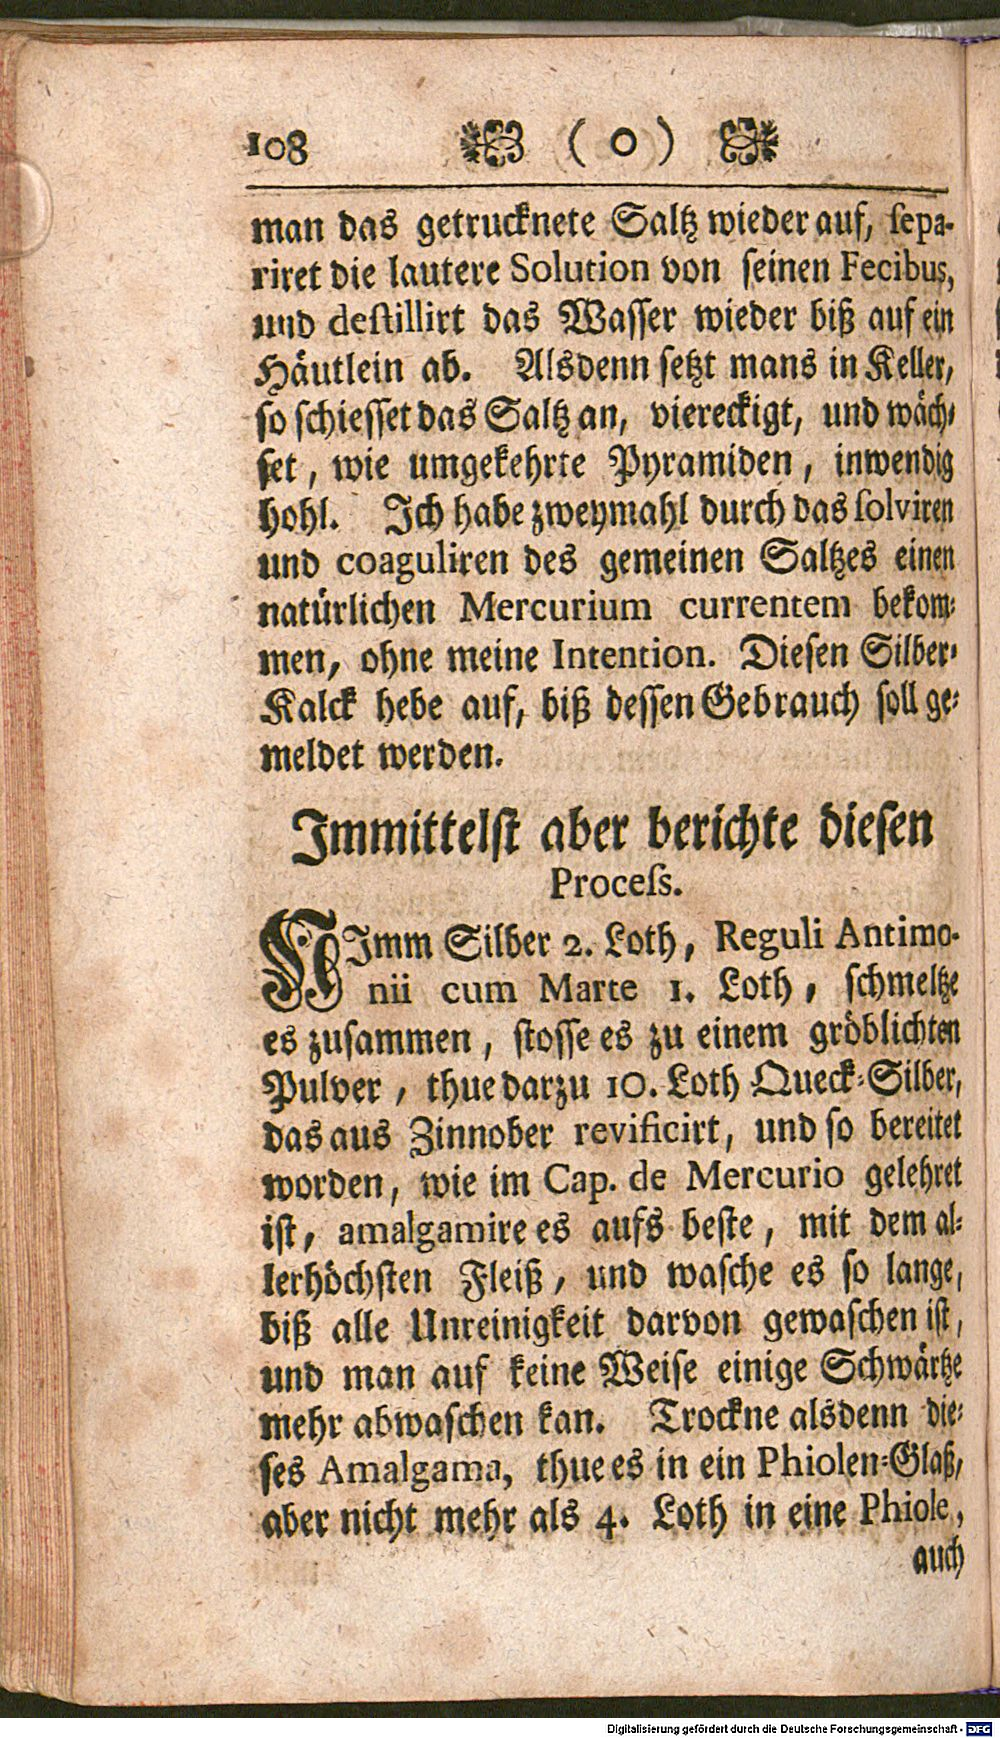 108 ( o )
man das getrucknete Saltz wieder auf, sepa-
riret die lautere Solution von seinen Fecibus,
und destillirt das Wasser wieder biß auf ein
Häutlein ab. Alsdenn setzt mans in Keller,
so schiesset das Saltz an, viereckigt, und wäch-
set, wie umgekehrte Pyramiden, inwendig
hohl. Ich habe zweymahl durch das solviren
und coaguliren des gemeinen Saltzes einen
natürlichen Mercurium currentem bekom-
men, ohne meine Intention. Diesen Silber-
Kalck hebe auf, biß dessen Gebrauch soll ge-
meldet werden.
Immittelst aber berichte diesen
Process.
NImm Silber 2. Loth, Reguli Antimo-
nii cum Marte 1. Loth, schmeltze
es zusammen, stosse es zu einem gröblichten
Pulver, thue darzu 10. Loth Queck-Silber,
das aus Zinnober revificirt, und so bereitet
worden, wie im Cap. de Mercurio gelehret
ist, amalgamire es aufs beste, mit dem al-
lerhöchsten Fleiß, und wasche es so lange,
biß alle Unreinigkeit darvon gewaschen ist,
und man auf keine Weise einige Schwärtze
mehr abwaschen kan. Trockne alsdenn die-
ses Amalgama, thue es in ein Phiolen-Glaß,
aber nicht mehr als 4. Loth in eine Phiole,
auch
Digitalisierung gefördert durch die Deutsche Forschungsgemeinschaft - DFG